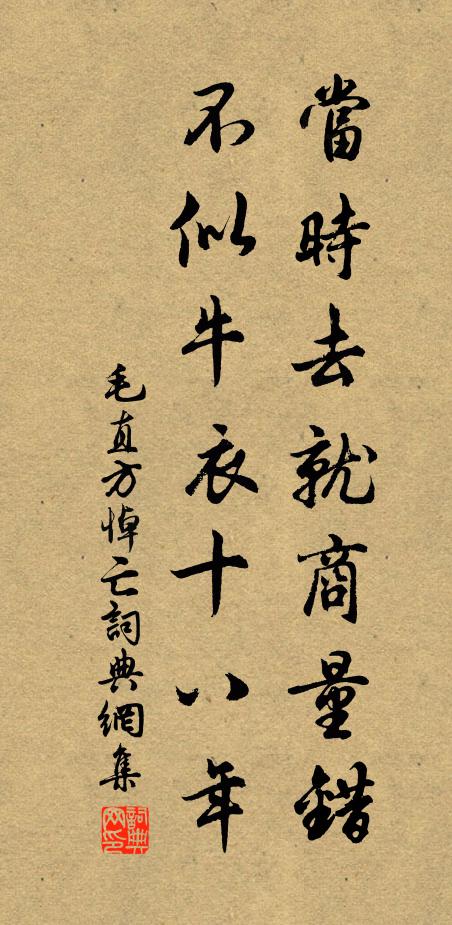 當時去就商量錯
不似牛衣十八年
毛直方悼亡詞典網集
詞典网印